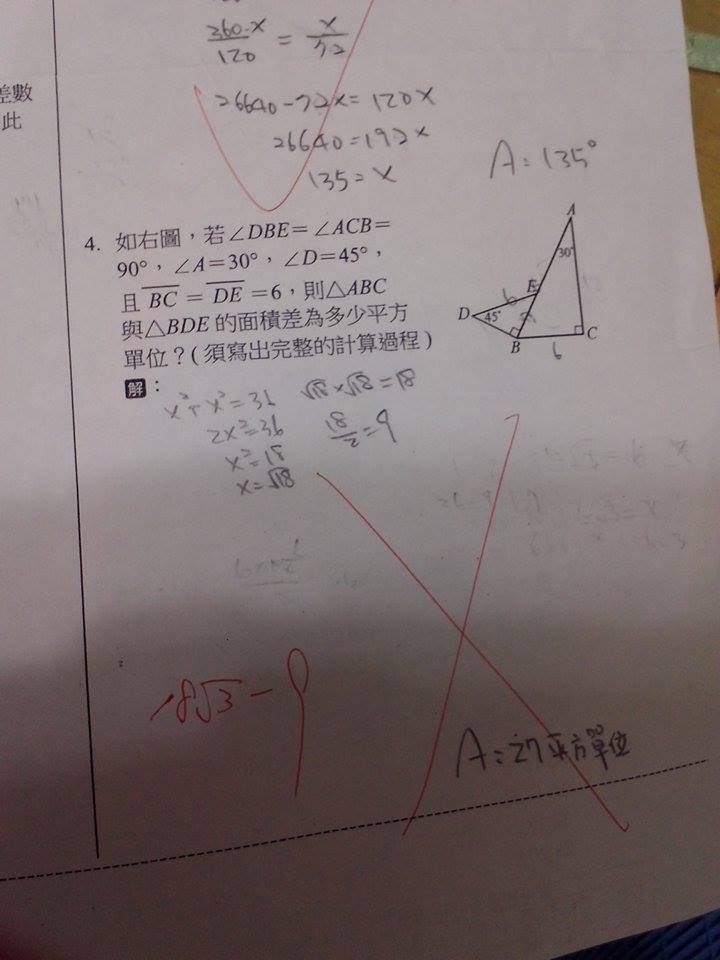 差數
此
360-x/120 = x/72
26640-72x=120x
26640=192x
135=x
A=135°
4. 如右圖，若∠DBE=∠ACB=
90°，∠A=30°，∠D=45°，
且 BC = DE =6，則△ABC
與△BDE 的面積差為多少平方
單位？(須寫出完整的計算過程)
A
30°
E
6
D
45°
B
C
6
解：
x²+x²=36
2x²=36
x²=18
x=√18
√18×√18=18
18/2=9
18√3-9
A=27平方單位